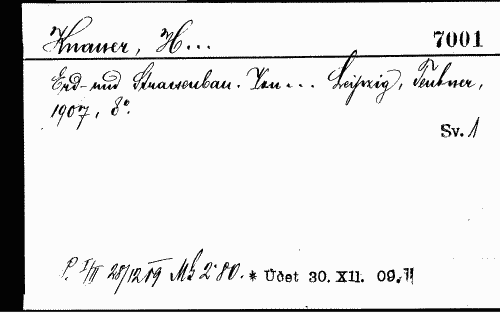 Knauer, H... 7001
Erd- und Strassenbau. Von... Leipzig, Teubner,
1907, 8°.
Sv. 1
P. I/II 28/12 09 Mk 2·80. * Účet 30. XII. 09.